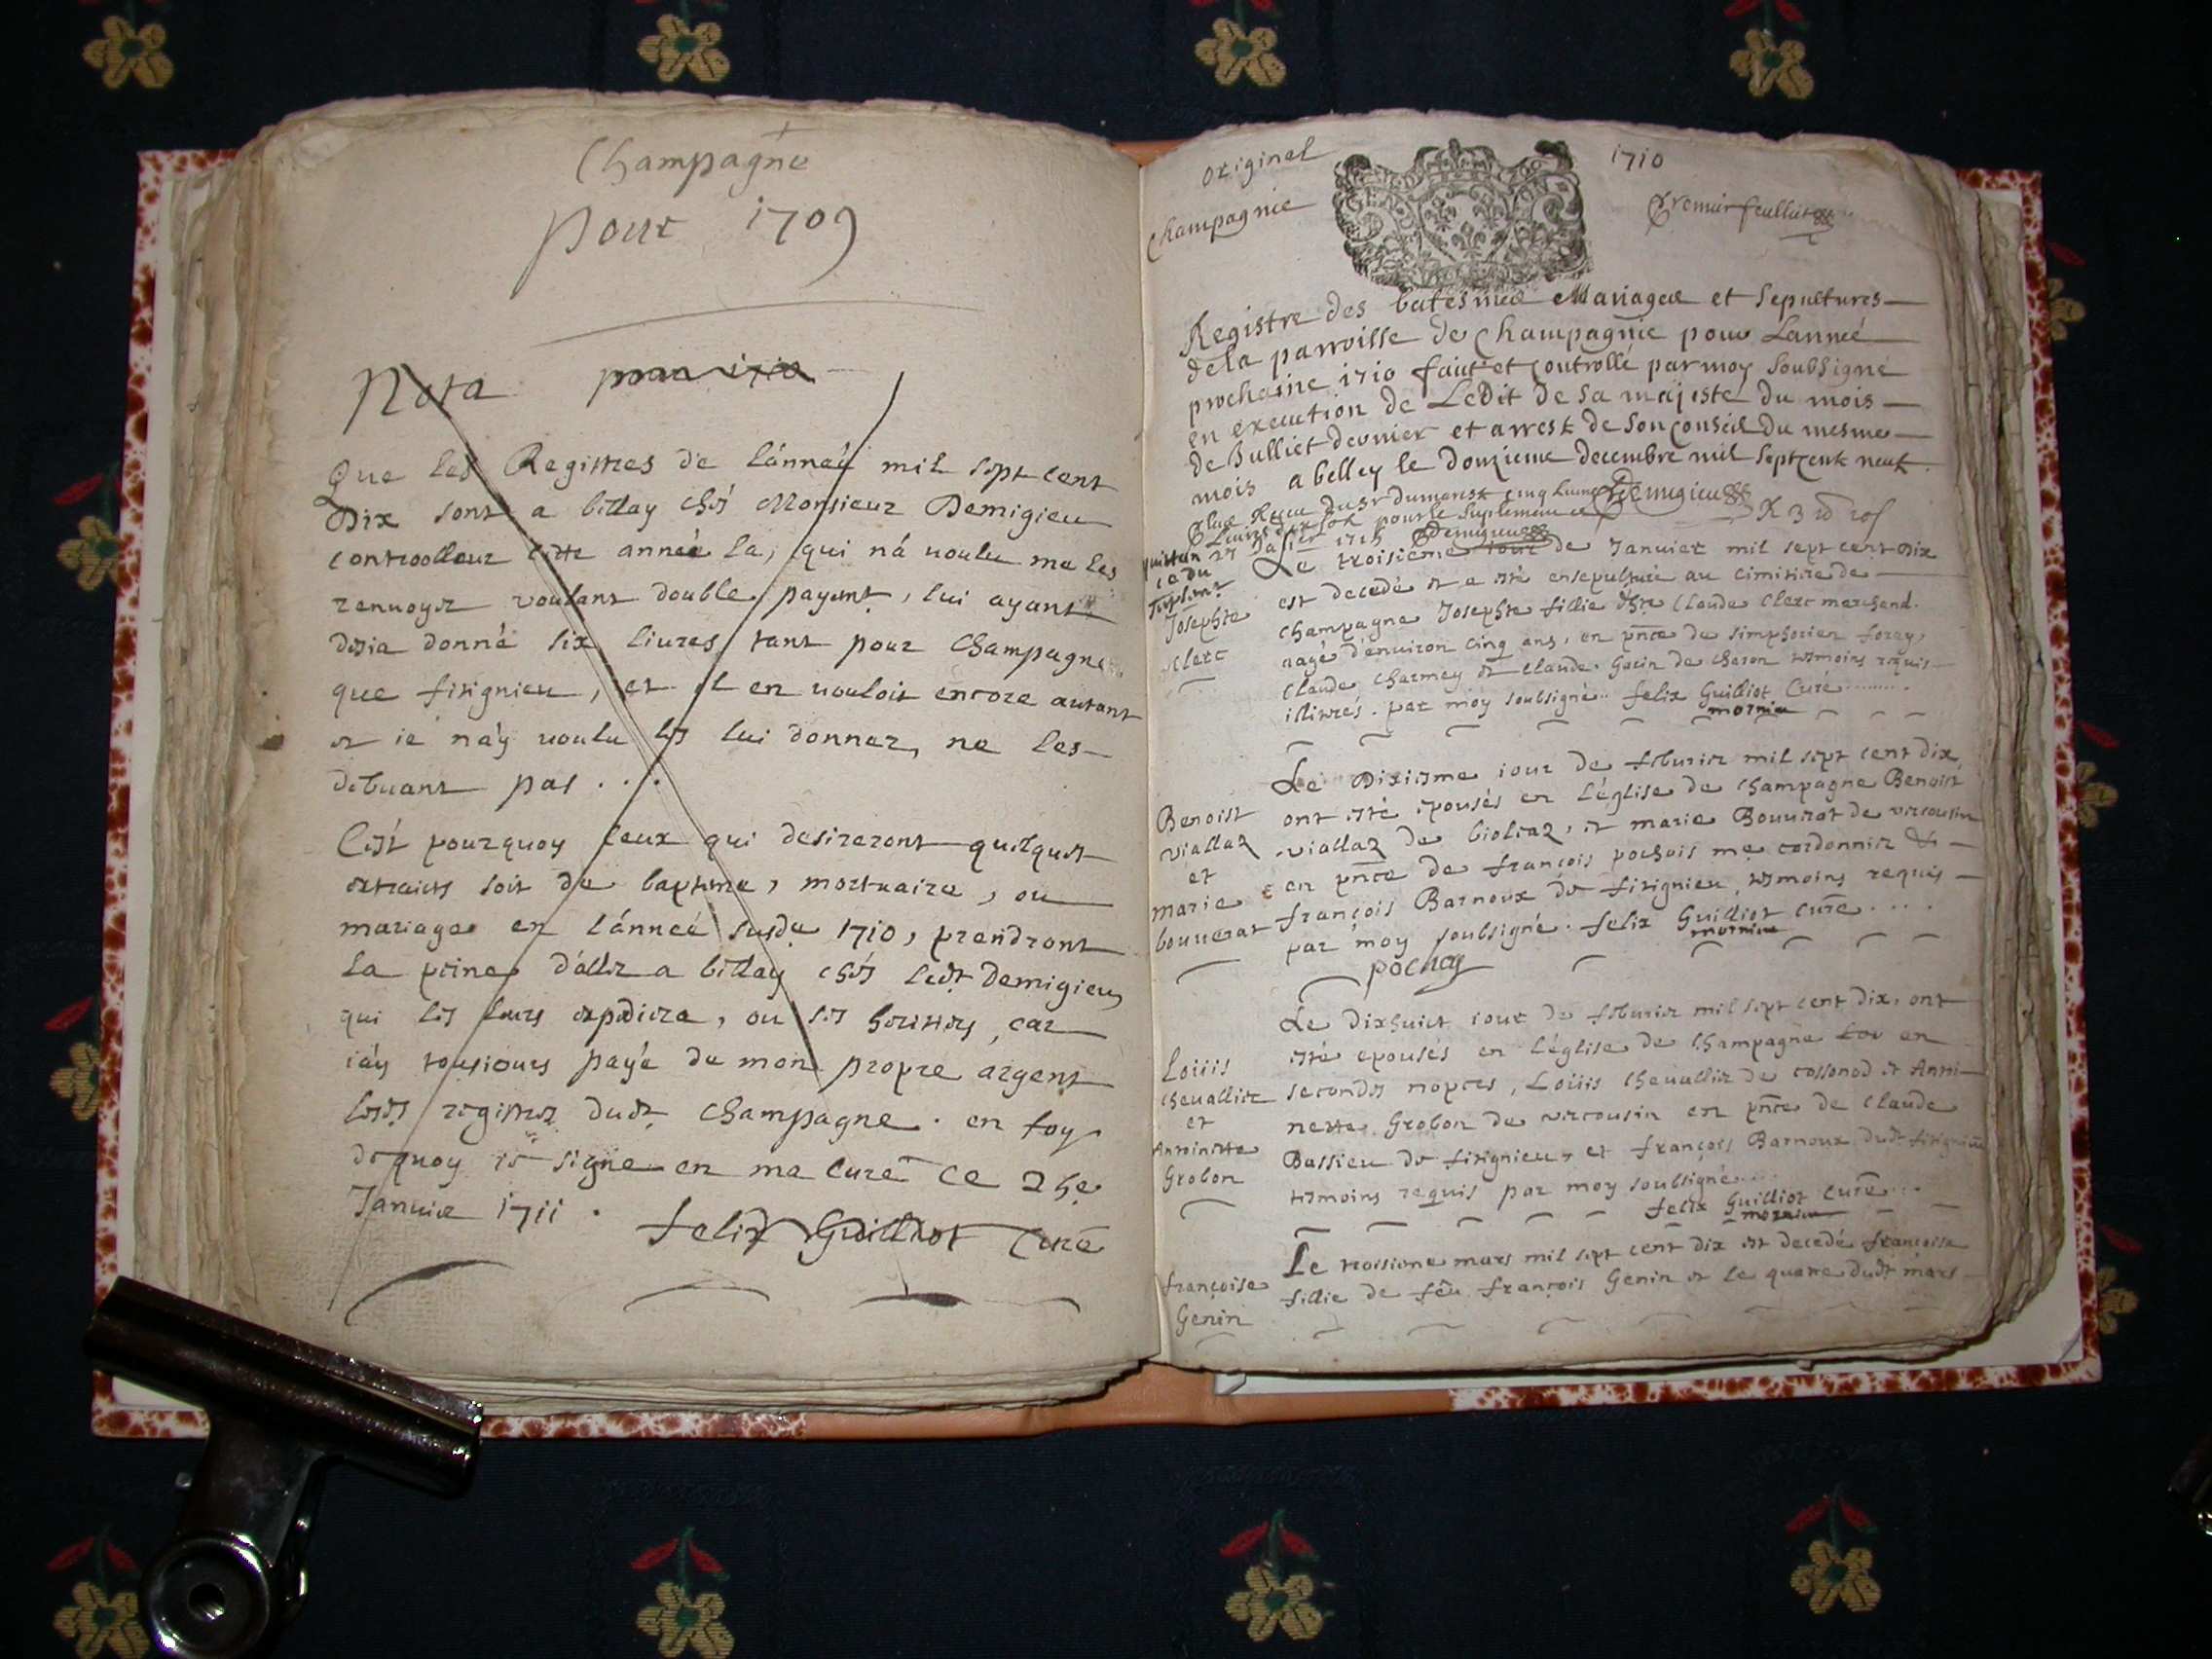 Champagne
Pour 1709
Nota pour 1710
Que les Registres de l'année mil sept cent
Dix sont a billay chés Monsieur Demigieu
controolleur cette année la, qui n'a voulu me les
renuoyer voulant double payent, lui ayant
desia donné six liures tant pour Champagne
que fitignieu, et il en vouloit encore autant
et ie n'ay voulu les lui donner, ne les
debuant pas . . . .
C'est pourquoy ceux qui desireront quelques
extraits soit de baptême, mortuaire, ou
mariage en l'année susde 1710, prendront
la peine d'aller a billay chés ledt Demigieu
qui les leurs expediera, ou ses heritiers, car
i'ay tousiours payé de mon propre argent
lesds registres dudt Champagne . en foy
dequoy ie signe en ma cure ce 25e
Januier 1711 .
felix Guilliot Curé
Originel
1710
Champagnie
Premier feullet
Registre des batesmes Mariages et sepultures
de la parroisse de Champagnie pour Lanneé
prochaine 1710 fait et controllé par moy soubsigné
en execution de Ledit de sa majesté du mois
de Julliet dernier et arrest de son conseil du mesme
mois a belley le douzieme decembre mil septcent neuf.
Demigieu
Le troisieme iour de Januier mil sept cent dix
est decedé et a esté ensepulturé au cimitiere de
Josephte
Champagne Josephte fillie d'hte Claude Clerc marchand.
Clerc
eagé d'enuiron cinq ans, en pnce de simphorien forey,
Claude Charmey et Claude Goein de Charon tesmoins requis
illitirés . par moy soubsigné .. felix Guilliot Curé
mornieu
Le Dixiesme iour de feburier mil sept cent dix
Benoist
ont esté epousés en l'église de Champagne Benoist
viallaz
viallaz de bioleaz, et marie Bouuerat de vircousin
et
en pnce de françois pochois me cordonnier &
marie
françois Barnoux de fitignieu, tesmoins requis
bouuerat
par moy soubsigné . felix Guilliot Curé . . . .
mornieu
pochoy
Le dixhuict iour de feburier mil sept cent dix, ont
esté epousés en l'église de Champagne en
Loüis
secondes nopces, Loüis Cheuallier de cossonod et Antoi-
Cheuallier
et
nette Grobon de vircousin en pnce de Claude
Antoinette
Bassieu de fitignieu, et françois Barnoux dudt fitignieu
Grobon
tesmoins requis par moy soubsigné . . . .
felix Guilliot Curé . . .
mornieu
Le troisieme mars mil sept cent dix est decedé françoise
françoise
fillie de feû françois Genin et le quatre dudt mars
Genin